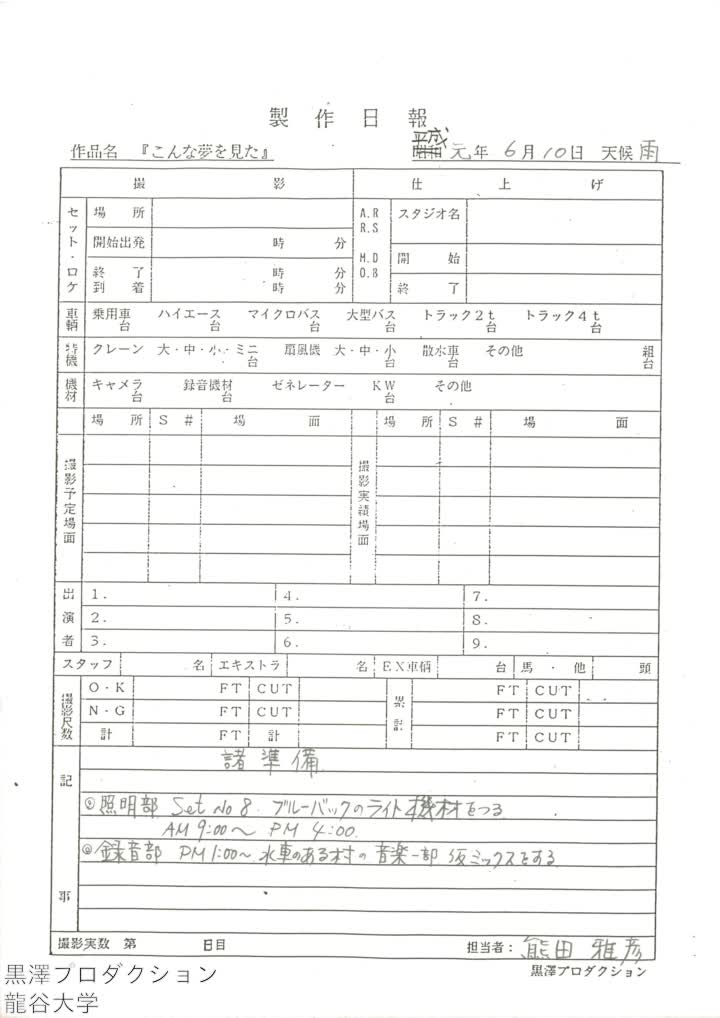 製作日報
作品名 『こんな夢を見た』 平成元年 6月10日 天候 雨
撮影 仕上げ
セット・ロケ 場所 A.R R.S スタジオ名
開始出発 時 分 M.D O.B 開始
終了 時 分 終了
到着 時 分
車輌 乗用車 台 ハイエース 台 マイクロバス 台 大型バス 台 トラック2t 台 トラック4t 台
特機 クレーン 大・中・小・ミニ 台 扇風機 大・中・小 台 散水車 台 その他 組 台
機材 キャメラ 台 録音機材 台 ゼネレーター KW 台 その他
場所 S# 場面 場所 S# 場面
撮影予定場面 撮影実績場面
出演者 1. 4. 7.
2. 5. 8.
3. 6. 9.
スタッフ 名 エキストラ 名 EX車輌 台 馬・他 頭
撮影尺数 O・K FT CUT 累計 FT CUT
N・G FT CUT FT CUT
計 FT 計 FT CUT
記事
諸準備
◎照明部 Set No 8. ブルーバックのライト機材をつる
AM 9:00〜 PM 4:00.
◎録音部 PM 1:00〜 水車のある村の音楽一部 仮ミックスをする
撮影実数 第 日目 担当者: 熊田雅彦
黒澤プロダクション
黒澤プロダクション
龍谷大学